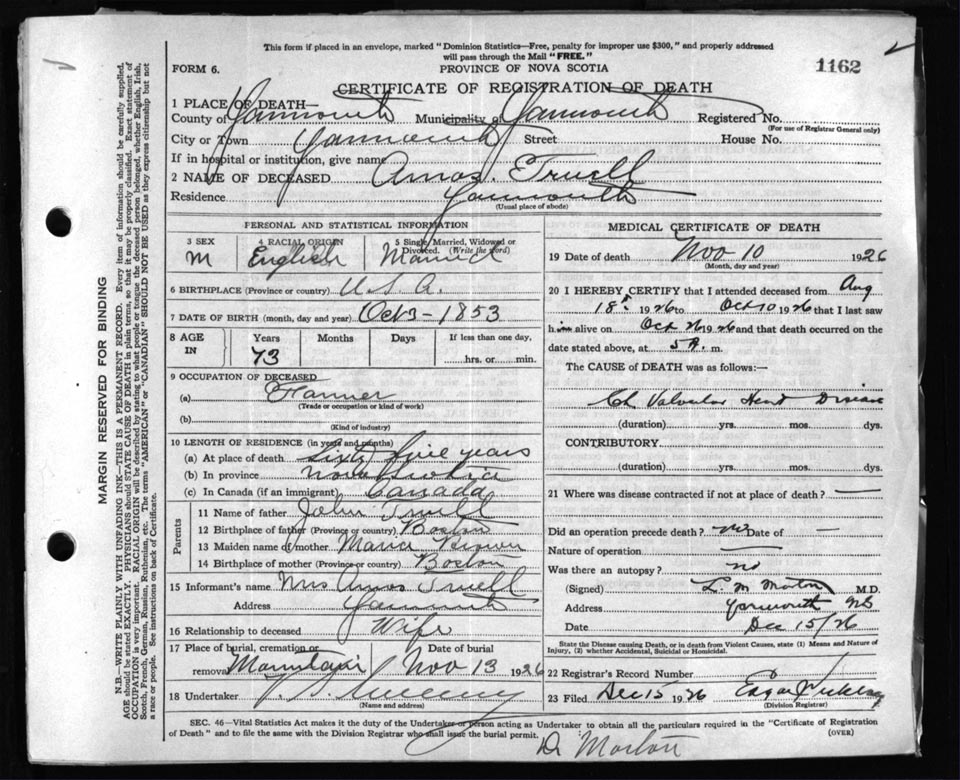 This form if placed in an envelope, marked "Dominion Statistics—Free, penalty for improper use $300," and properly addressed
will pass through the Mail "FREE."
FORM 6.
PROVINCE OF NOVA SCOTIA
1162
CERTIFICATE OF REGISTRATION OF DEATH
1 PLACE OF DEATH—
County of Yarmouth Municipality of Yarmouth Registered No.
(For use of Registrar General only)
City or Town Yarmouth Street House No.
If in hospital or institution, give name
2 NAME OF DECEASED Amos Truell
Residence Yarmouth
(Usual place of abode)
PERSONAL AND STATISTICAL INFORMATION
3 SEX 4 RACIAL ORIGIN 5 Single, Married, Widowed or
Divorced. (Write the word)
M English Married
6 BIRTHPLACE (Province or country) U.S.A.
7 DATE OF BIRTH (month, day and year) Oct 3 - 1853
8 AGE IN Years Months Days If less than one day,
73 hrs. or min.
9 OCCUPATION OF DECEASED
(a)
(Trade or occupation or kind of work)
(b)
(Kind of industry)
10 LENGTH OF RESIDENCE (in years and months)
(a) At place of death sixty five years
(b) In province Nova Scotia
(c) In Canada (if an immigrant) Canada
Parents
11 Name of father John Truell
12 Birthplace of father (Province or country) Boston
13 Maiden name of mother Maria
14 Birthplace of mother (Province or country) Boston
15 Informant's name Mrs Amos Truell
Address Yarmouth
16 Relationship to deceased Wife
17 Place of burial, cremation or removal Date of burial
Nov 13 1926
18 Undertaker
(Name and address)
MEDICAL CERTIFICATE OF DEATH
19 Date of death Nov 10 1926
(Month, day and year)
20 I HEREBY CERTIFY that I attended deceased from Aug
18th 1926 to Oct 10 1926 that I last saw
him alive on Oct 26 1926 and that death occurred on
date stated above, at 5 A. m.
The CAUSE of DEATH was as follows:—
Ch Valvular Heart Disease
(duration) yrs. mos. dys.
CONTRIBUTORY
(duration) yrs. mos. dys.
21 Where was disease contracted if not at place of death?
Did an operation precede death? no Date of
Nature of operation
Was there an autopsy? no
(Signed) L. M. Morton M.D.
Address Yarmouth NS
Date Dec 15/26
State the Disease causing Death, or in death from Violent Causes, state (1) Means and Nature of
Injury, (2) whether Accidental, Suicidal or Homicidal.
22 Registrar's Record Number
23 Filed Dec 15 1926 Edgar
(Division Registrar)
SEC. 46—Vital Statistics Act makes it the duty of the Undertaker or person acting as Undertaker to obtain all the particulars required in the "Certificate of Registration
of Death" and to file the same with the Division Registrar who shall issue the burial permit.
(OVER)
Dr Morton
MARGIN RESERVED FOR BINDING
N.B.—WRITE PLAINLY, WITH UNFADING INK—THIS IS A PERMANENT RECORD. Every item of information should be carefully supplied.
AGE should be stated EXACTLY. PHYSICIANS should STATE CAUSE OF DEATH in plain terms, so that it may be properly classified. Exact statement of
OCCUPATION is very important. RACIAL ORIGIN will be described by stating to what people or tongue the deceased person belonged, whether English, Irish,
Scotch, French, German, Russian, Ruthenian, etc. The terms "AMERICAN" or "CANADIAN" SHOULD NOT BE USED as they express citizenship but not
a race or people. See instructions on back of Certificate.